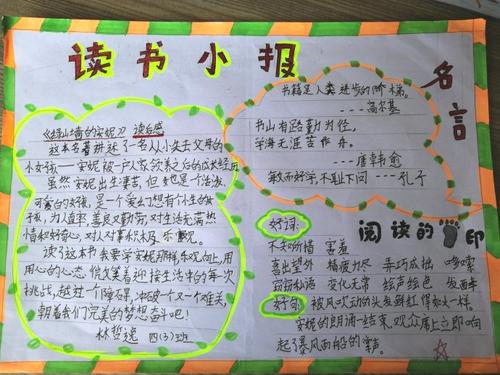 读书小报
《绿山墙的安妮》读后感
这本名著讲述了一名从小失去父母的
小女孩——安妮被一户人家收养之后的成长经历
虽然安妮出生贫苦，但她也是个活泼、
可爱的女孩，是一个爱幻想有个性的女
孩，为人直率，善良又勤劳，对生活充满热
情和好奇心，对人对事积极乐观。
读了这本书我要学安妮那样，乐观向上，用
心的心态，
迎接生活中的每一次
挑战，越过一个个障碍，冲破一个又一个难关，
朝着我们完美的梦想奋斗吧！
林哲逸 四(3)班
名言
书籍是人类进步的阶梯。
---高尔基
书山有路勤为径，
学海无涯苦作舟。
---唐韩愈
敏而好学，不耻下问 ---孔子
阅读的印
好词:
不知所措 害羞
喜出望外 精疲力尽 弄巧成拙 哆嗦
窃窃私语 变化无常 绘声绘色
好句: 被风吹动的头发鲜红得如火一样。
安妮的朗诵一结束，观众席上立即响
起了暴风雨般的掌声